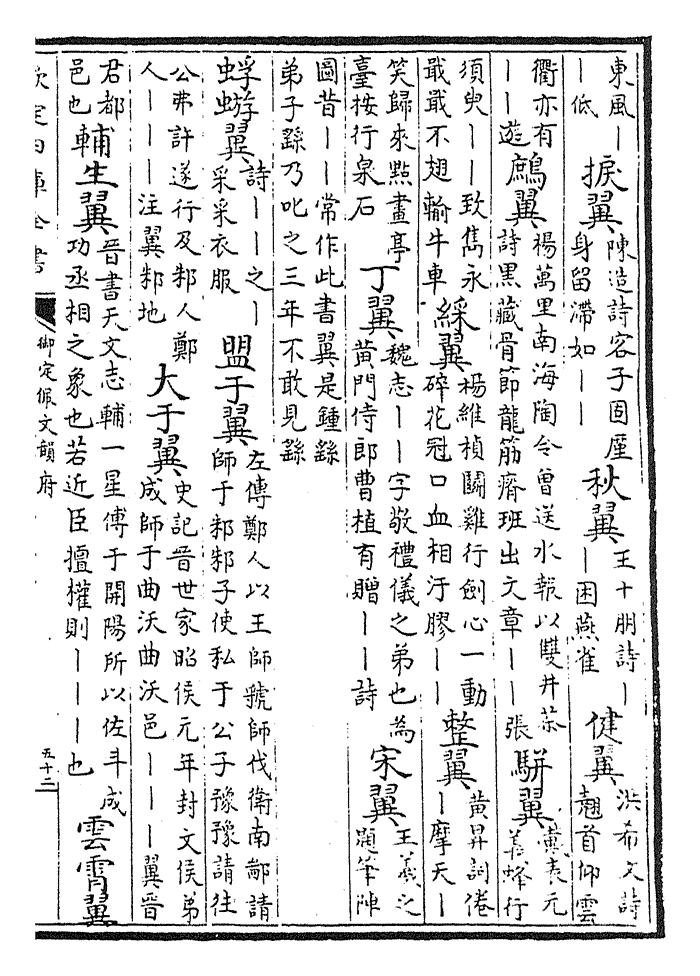 東風丨丨低捩翼陳造詩客子固厘身留滯如丨丨秋翼王十朋詩丨丨困燕雀健翼洪希文詩翹首仰雲
衢亦有丨丨遊鷓翼楊萬里南海陶令曾送水報以雙井茶詩黒藏骨節龍筋瘠班出文章丨丨張駢翼黄袞元義蜂行
須臾丨丨致雋永戢戢不翅輸牛車綵翼楊維楨鬭雞行劍心一動碎花冠口血相汙膠丨丨整翼黄昇詞倦丨摩天丨
笑歸來點畫亭臺按行泉石丁翼魏志丨丨字敬禮儀之弟也為黄門侍郎曹植有贈丨丨詩宋翼王羲之題筆陣
圖昔丨丨常作此書翼是鍾繇弟子繇乃叱之三年不敢見繇
蜉蝣翼詩丨丨之丨采采衣服盟于翼左傳鄭人以王師虢師伐衛南鄙請師于邾邾子使私于公子豫豫請往
公弗許遂行及邾人鄭人丨丨丨注翼邾地大于翼史記晉世家昭侯元年封文侯弟成師于曲沃曲沃邑丨丨丨翼晉
君都邑也輔生翼晉書天文志輔一星傅于開陽所以佐斗成功丞相之象也若近臣擅權則丨丨丨也雲霄翼
欽定四庫全書
御定佩文韻府
五十二